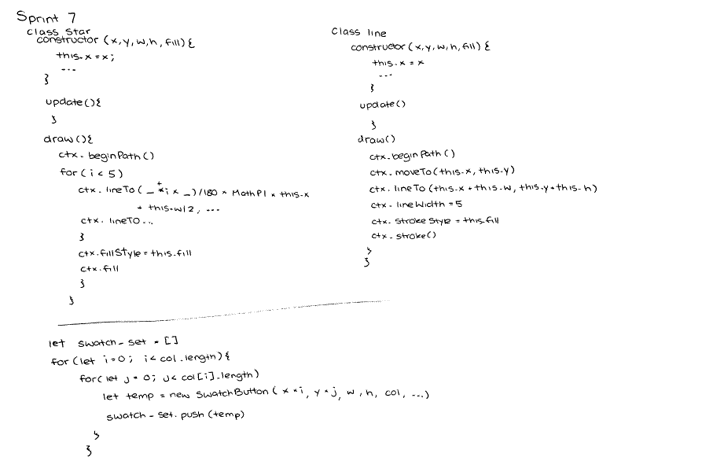 Sprint 7
class Star
constructor (x, y, w, h, fill) {
this.x = x;
...
}
update () {
}
draw () {
ctx. beginPath ()
for (i < 5)
ctx. lineTo ( _ + * i x _ )/180 * Math PI * this.x
+ this.w/2, ...
ctx. lineTo ...
}
ctx.fillStyle = this.fill
ctx.fill
}
}
Class line
constructor (x, y, w, h, fill) {
this.x = x
...
}
update ()
}
draw ()
ctx. begin Path ()
ctx. moveTo (this.x, this.y)
ctx. lineTo (this.x + this.w, this.y + this.h)
ctx. lineWidth = 5
ctx. stroke Style = this.fill
ctx. stroke ()
}
}
let swatch_set = []
for (let i = 0; i < col.length) {
for (let j = 0; j < col[i].length)
let temp = new SwatchButton ( x * i, y * j, w, h, col, ...)
swatch_set. push (temp)
}
}